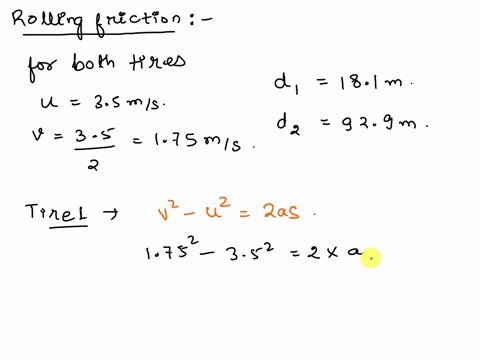 Rolling friction :-
for both tires
u = 3.5 m/s.
v = 3.5/2 = 1.75 m/s.
d₁ = 18.1 m.
d₂ = 92.9 m.
Tire 1 → v² - u² = 2as.
1.75² - 3.5² = 2 × a